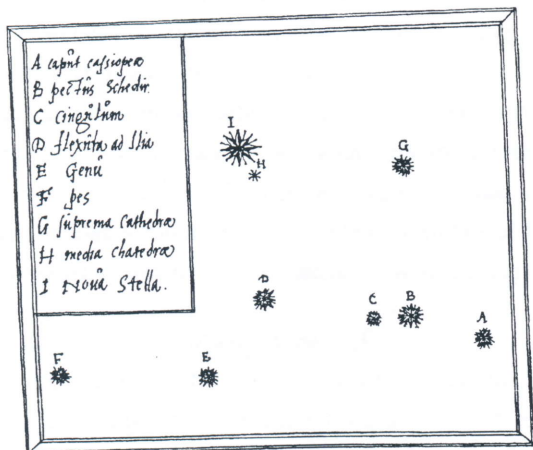 A capût cassiopeæ
B pectûs Schedir.
C cingûlûm
D flexûra ad Ilia
E Genû
F pes
G sûprema Cathedræ
H media chatedræ
I Noûa Stella.
I
H
G
D
C
B
A
F
E